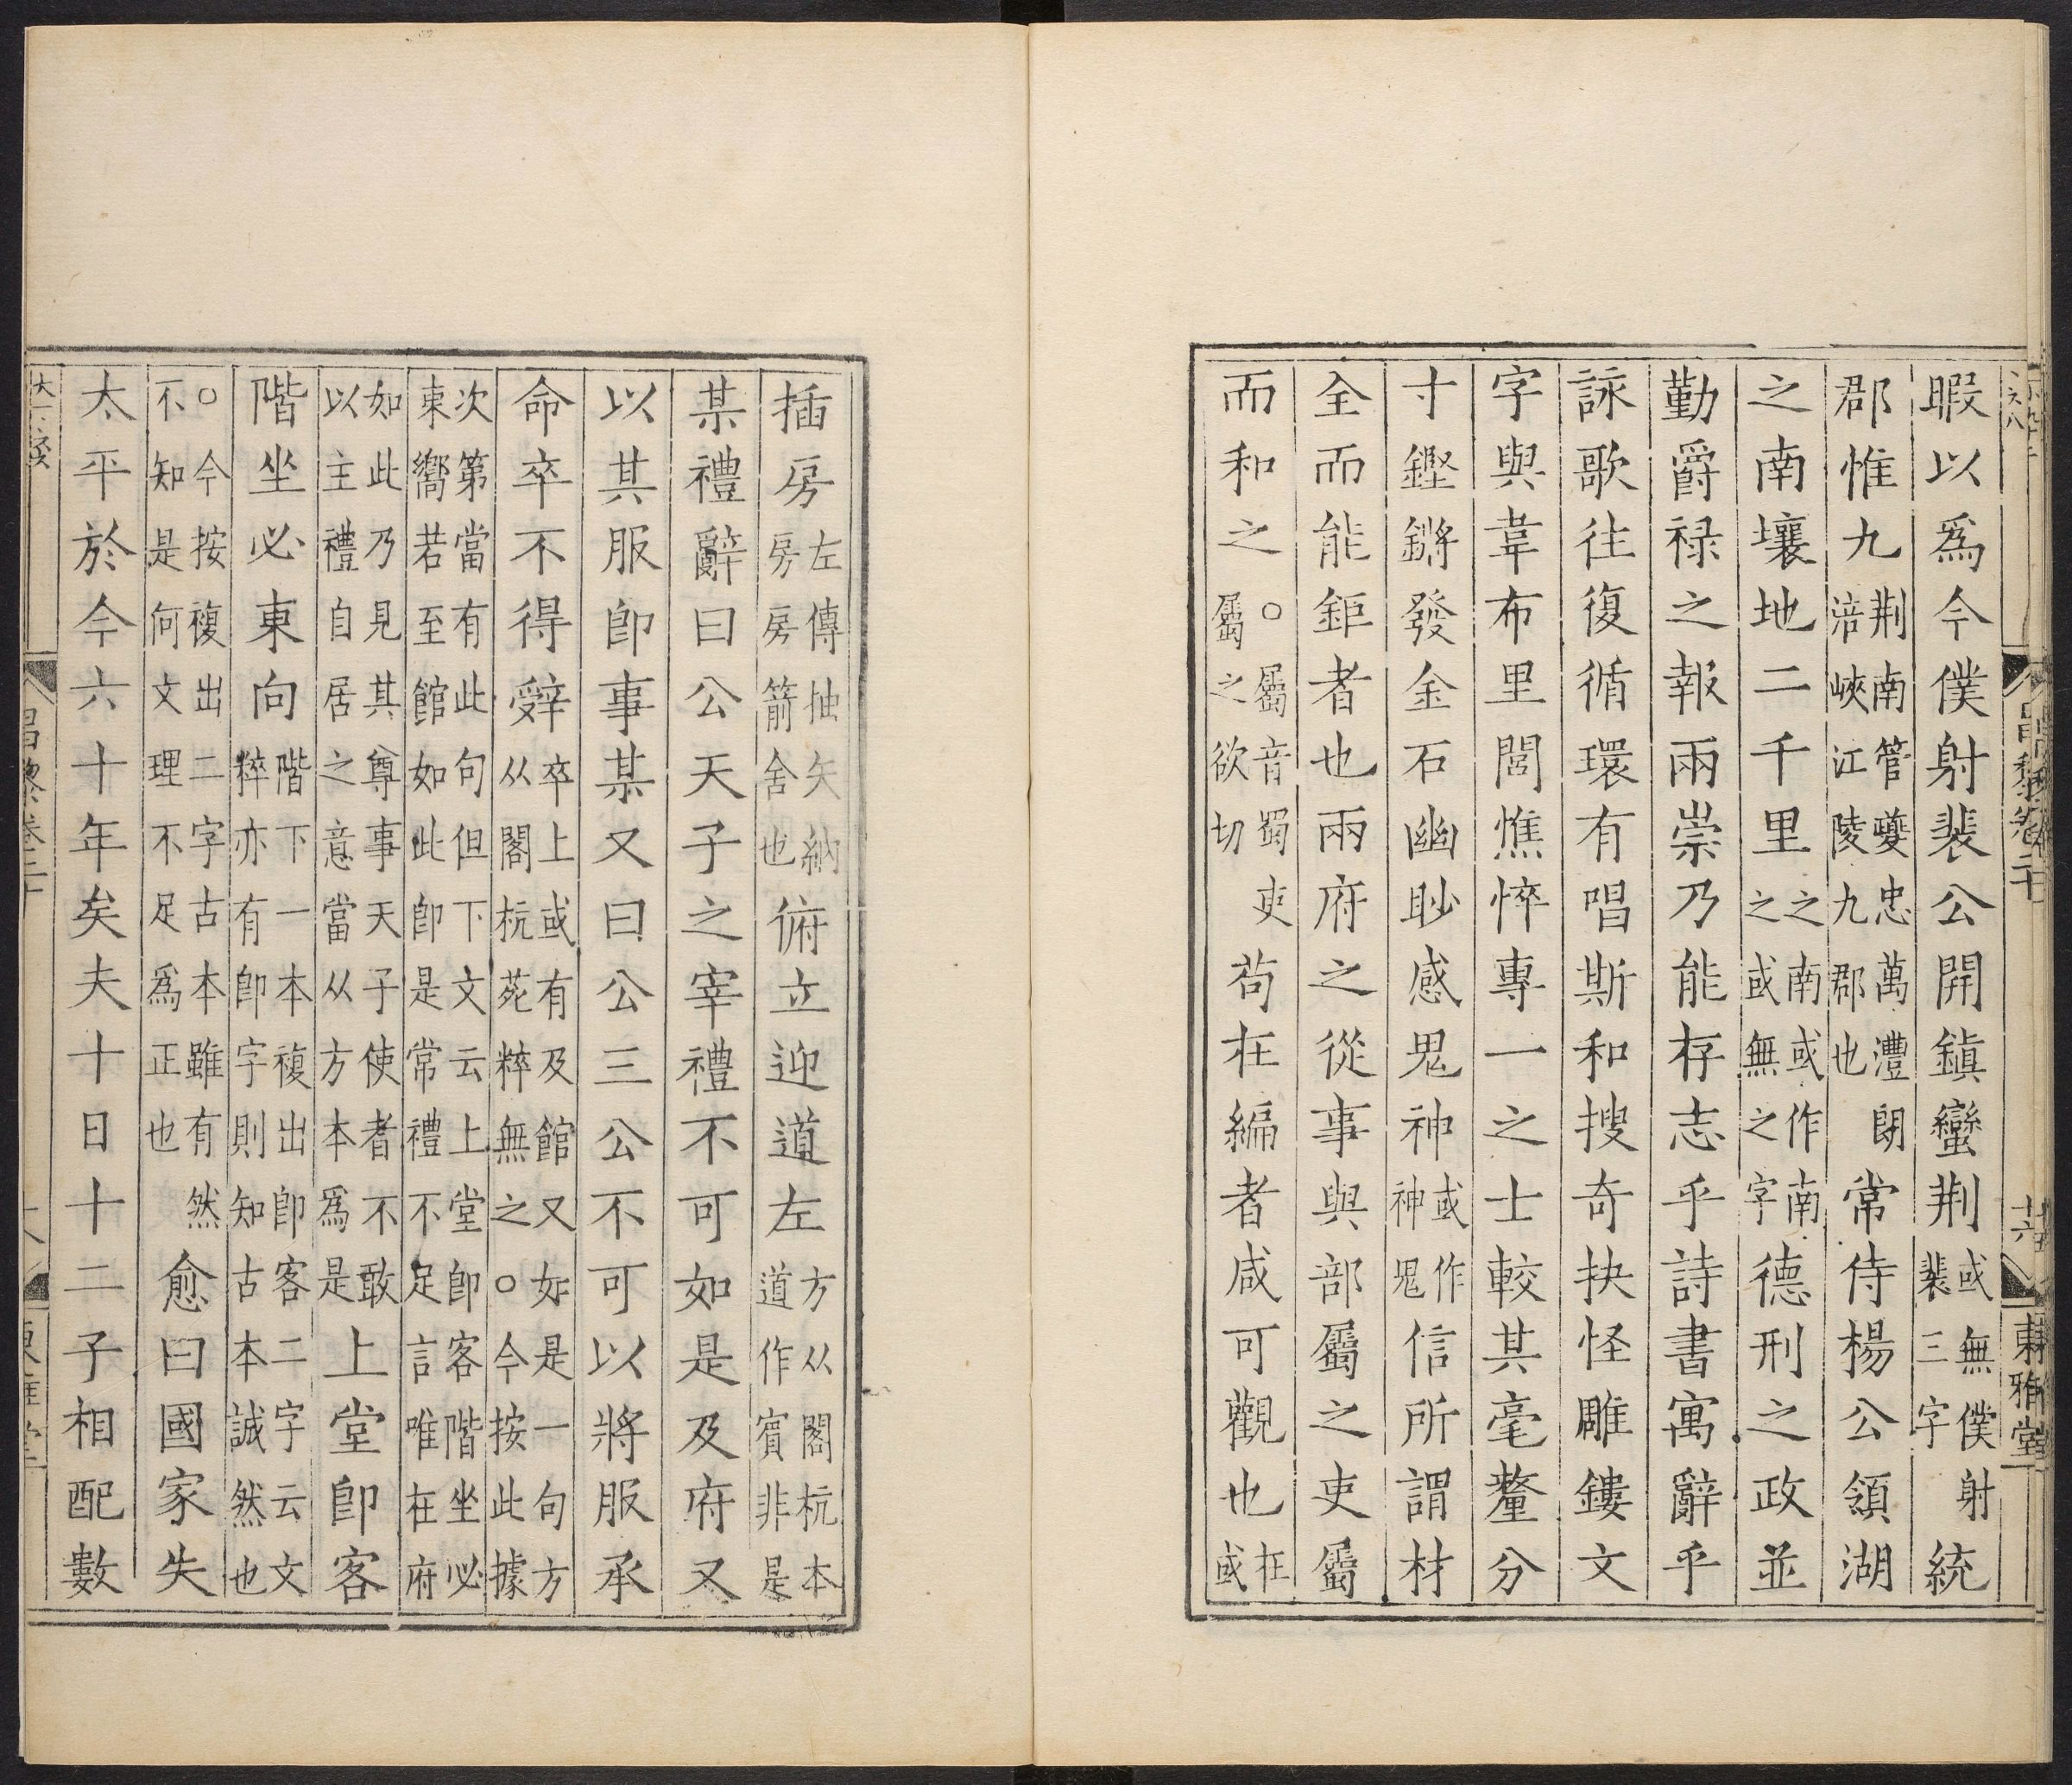 暇以爲今僕射裴公開鎮蠻荆或無僕射裴三字統
郡惟九荆南管夔忠萬澧朗涪峽江陵九郡也常侍楊公領湖
之南壤地二千里之南或作南之或無之字德刑之政並
勤爵禄之報兩崇乃能存志乎詩書寓辭乎
詠歌往復循環有唱斯和搜奇抉怪雕鏤文
字與韋布里閭憔悴專一之士較其毫釐分
寸鏗鏘發金石幽眇感鬼神或作神鬼信所謂材
全而能鉅者也兩府之從事與部屬之吏屬
而和之○屬音蜀吏屬之欲切苟在編者咸可觀也在或
插房左傳抽矢納房房箭舍也俯立迎道左方从閣杭本道作賓非是
某禮辭曰公天子之宰禮不可如是及府又
以其服卽事某又曰公三公不可以將服承
命卒不得辤卒上或有及館又如是一句方从閣杭苑粹無之○今按此據
次第當有此句但下文云上堂卽客階坐必東嚮若至館如此卽是常禮不足言唯在府
如此乃見其尊事天子使者不敢以主禮自居之意當从方本爲是上堂卽客
階坐必東向階下一本複出卽客二字云文粹亦有卽字則知古本誠然也
○今按複出二字古本雖有然不知是何文理不足爲正也愈曰國家失
太平於今六十年矣夫十日十二子相配數
昌黎卷二十
東雅堂